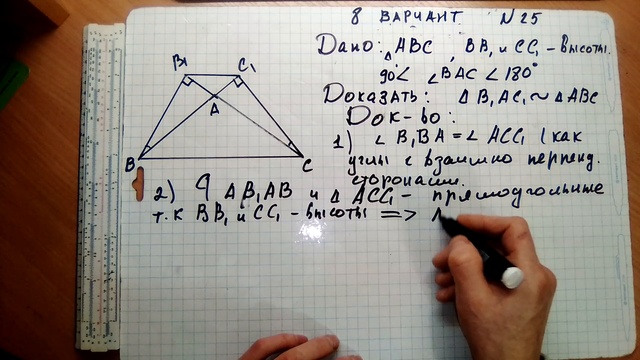 8 ВАРИАНТ N 25
Дано: △ABC, BB₁ и CC₁ - высоты.
90°< ∠BAC < 180°
Доказать: △B₁AC₁ ~ △ABC
Док-во:
1) ∠B₁BA = ∠ACC₁ (как
углы с взаимно перпенд.
сторонами.
2) △AB₁AB и △ACC₁ - прямоугольные
т.к BB₁ и CC₁ - высоты =>
B₁
C₁
A
B
C